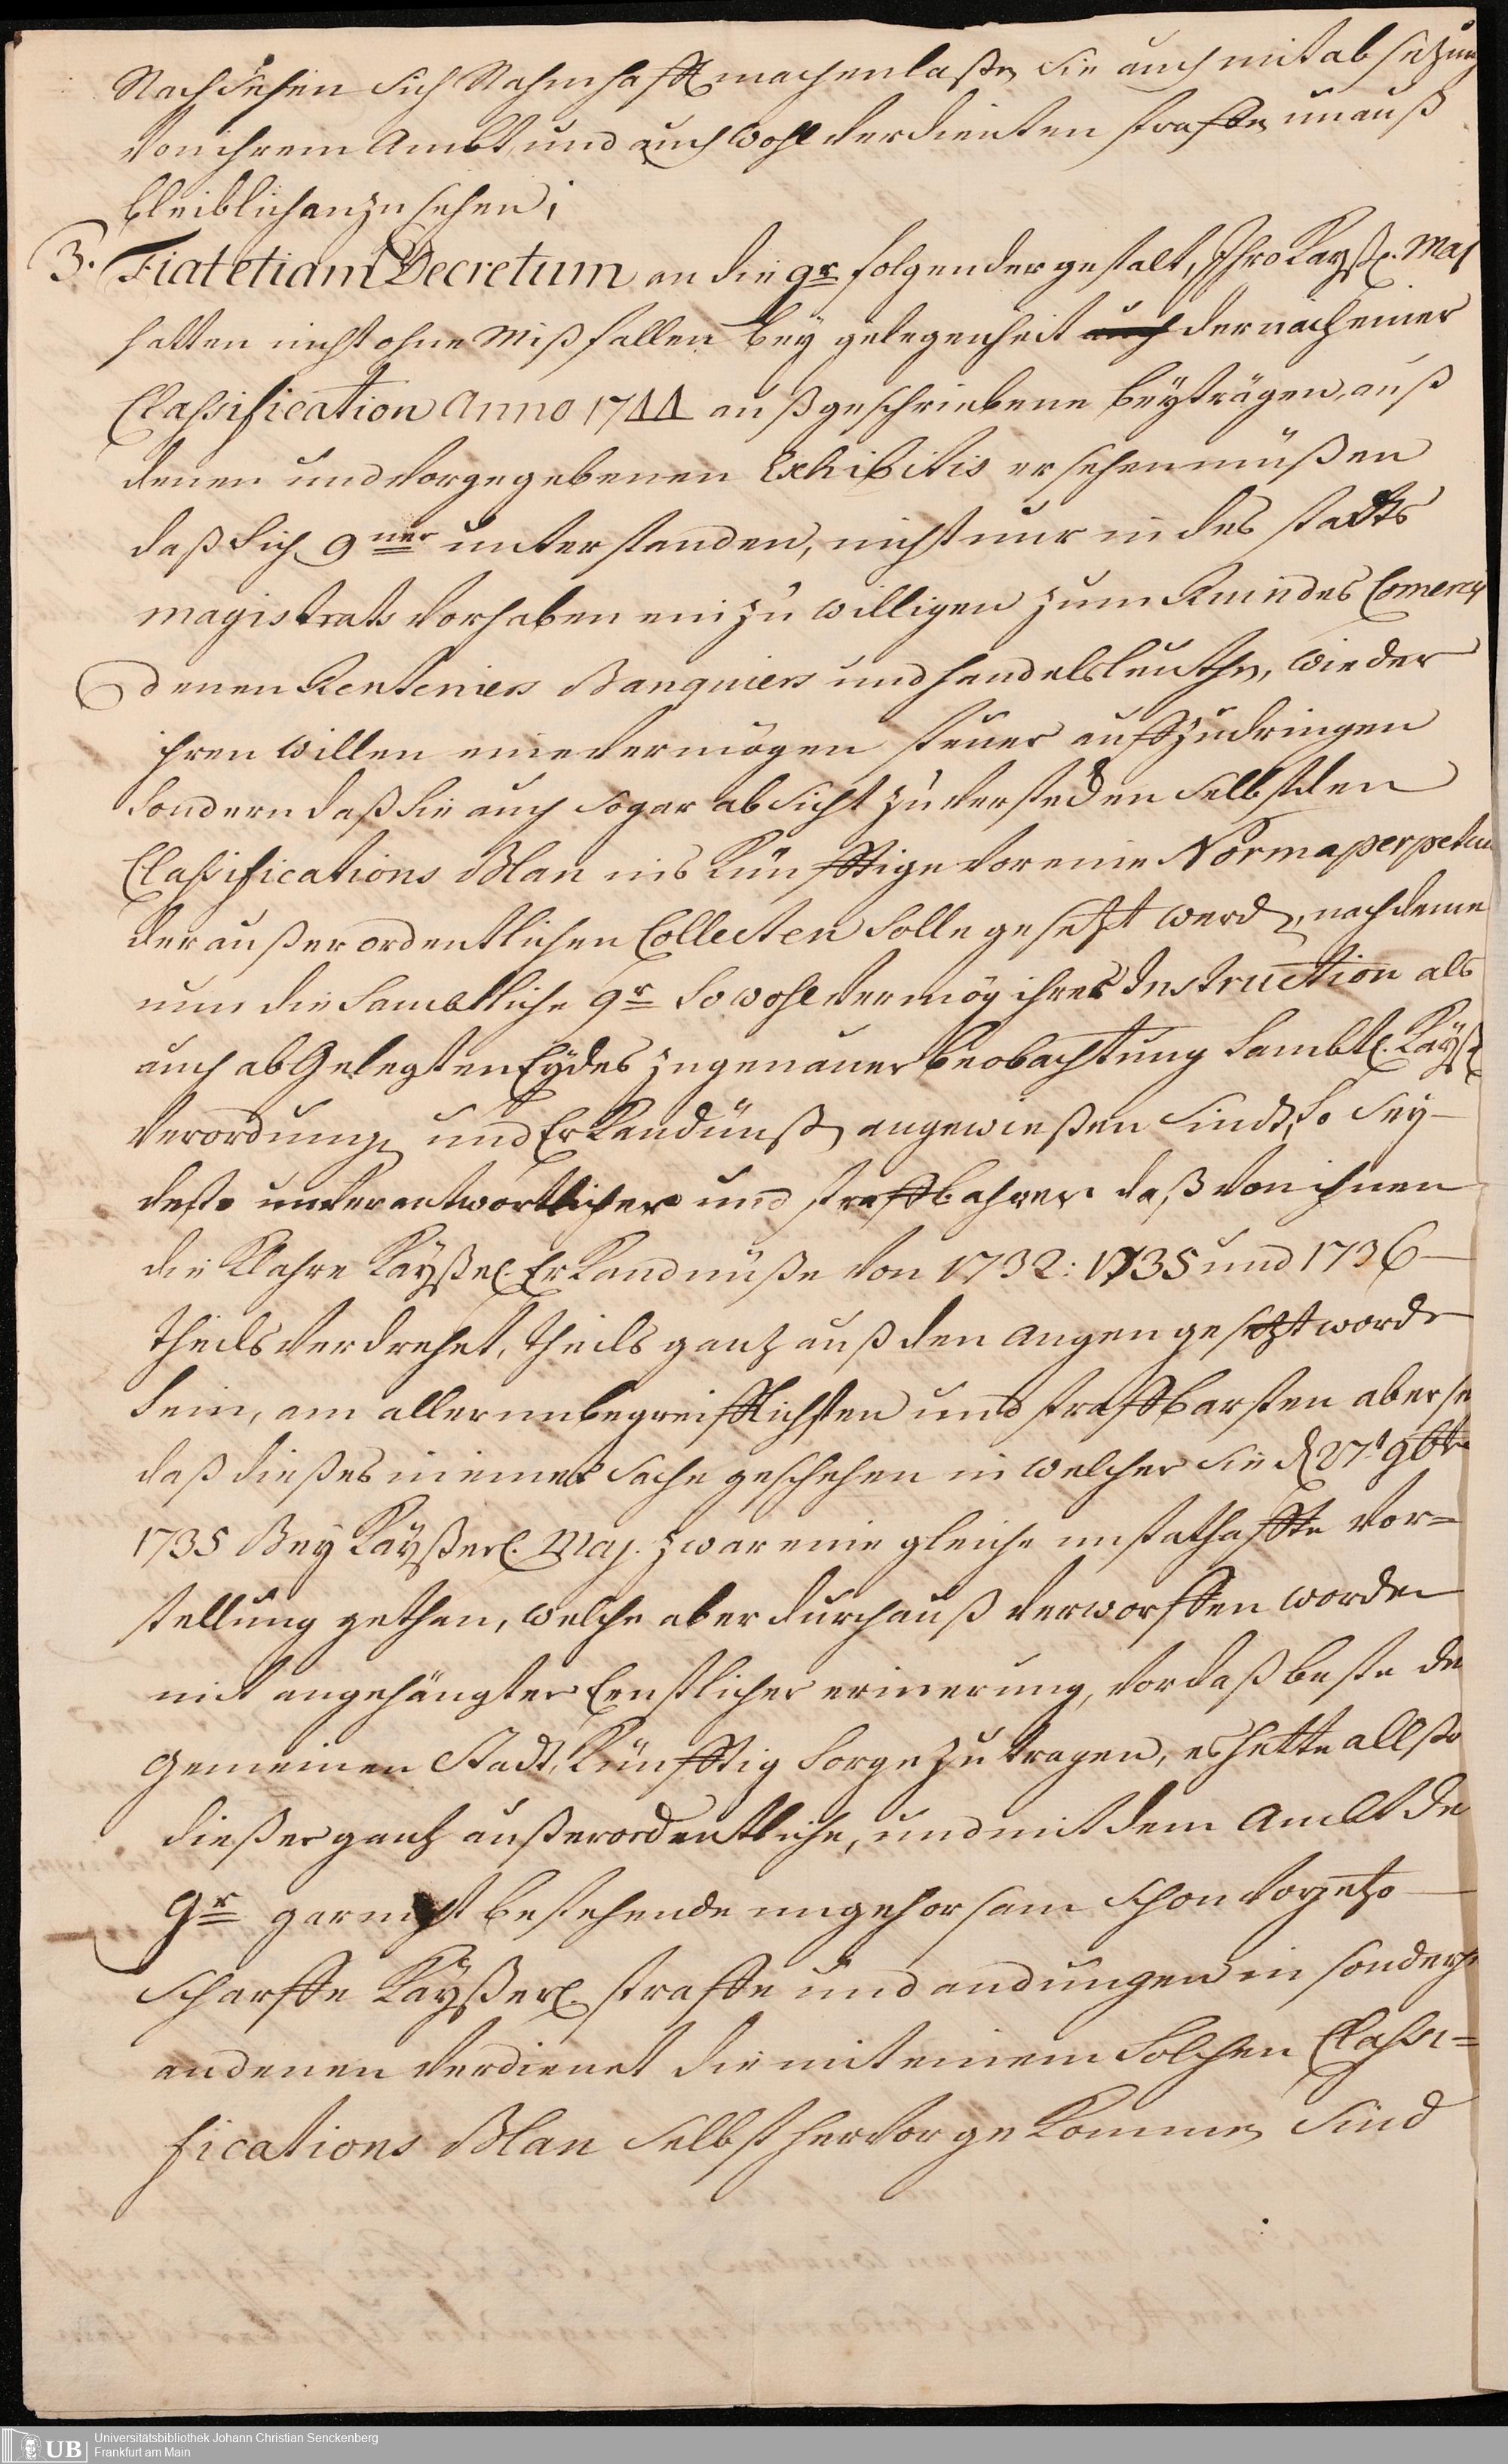 Nachsehen sich Nahmhafft machen laßen sie auch mit absezung
von ihrem Ambt, und auch wohl verdienten straffen unauß
bleiblich anzusehen;
3. Fiat etiam Decretum an die 9r folgender gestalt, Ihro Kayßl. Maj
hatten nicht ohne Mißfallen bey gelegenheit auch der nach einer
Classification Anno 1744 außgeschriebene beyträgen, auß
denen und vorgegebenen Exhibitis ersehen müßen
daß sich 9ner unterstanden, nicht nur in des stadts
magistrats vorhaben einzuwilligen zum Ruin des Comercy
denen Renteniers Banquiers und handelsleuthen, wieder
ihren willen eine vermögen steuer auffzudringen
sondern daß sie auch sogar absicht zu verstecken selbst den
Classifications Blan ins Künfftige vor eine Norma perpetua
der außerordentlichen Collecten solle gesetzt werden, nachdeme
nun die sambtliche 9r sowohl vermög ihrer Instruction als
auch abgelegten Eydes zu genauer beobachtung sambtl. Kayßl
verordnung und Erkandnuß angewießen sindt, so sey
desto unverantwortlicher und straffbahrer daß von ihnen
die klahre Kayßerl. Erkandnuße von 1732: 1735 und 1736
theils verdrehet, theils ganz auß den augen gesetzt worden
sein, am allerunbegreifflichsten und straffbarsten aber se
daß dießes in einer sache geschehen in welcher sie d 27t 9br
1735 Bey Kayßerl. Maj. zwar eine gleiche unstathaffte vor=
stellung gethan, welche aber durchauß verworffen worden
mit angehängter Ernstlicher erinnerung, vor daß beste de
gemeinen Stadt, Künfftig sorge zu tragen, es hette allßo
dießer ganz außerordentliche, und mit dem Ambt de
9r gar nicht bestehende ungehorsam schon vorjetzo
scharffe Kayßerl. straffe und andungen in sonderh
an denen verdienet die mit einem solchen Classi=
fications Blan selbst hervorgekommen sind
UB
Universitätsbibliothek Johann Christian Senckenberg
Frankfurt am Main